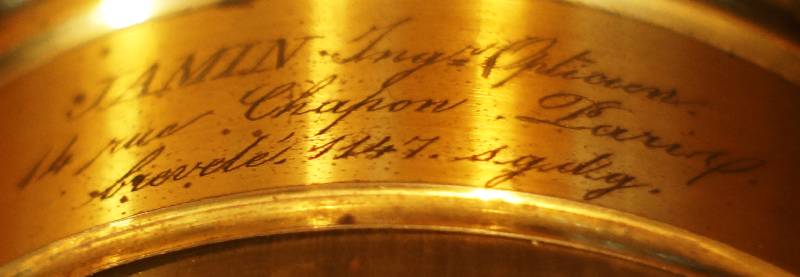 JAMIN Ingr. Opticien.
14 rue Chapon. Paris.
breveté. 1847. s.g.d.g.